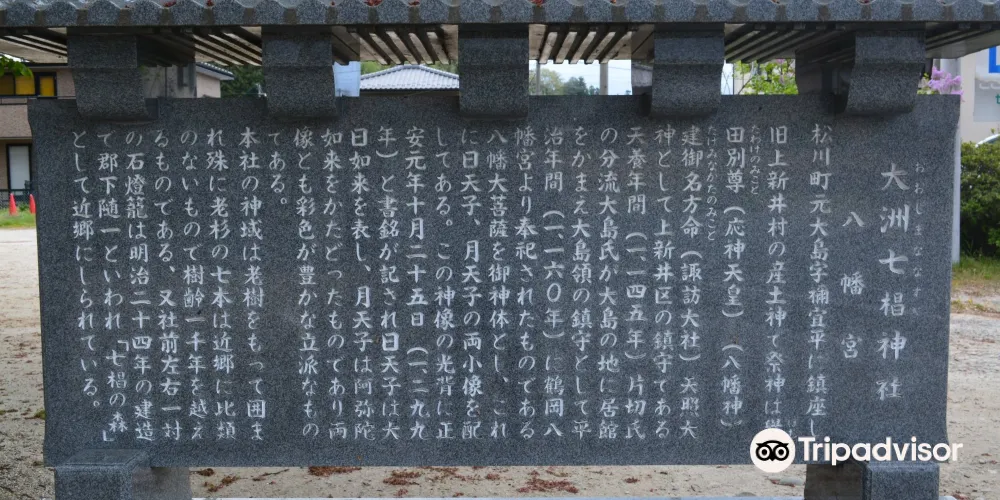 おおしまななすぎ
大洲七椙神社
八幡宮
松川町元大島字禰宜平に鎮座し
旧上新井村の産土神で祭神は
たけのみこと
田別尊(応神天皇)(八幡神)
たけみなかたのみこと
建御名方命(諏訪大社)天照大
神として上新井区の鎮守である
天養年間(一、一四五年)片切氏
の分流大島氏が大島の地に居館
をかまえ大島領の鎮守として平
治年間(一、一六〇年)に鶴岡八
幡宮より奉祀されたものである
八幡大菩薩を御神体とし、これ
に日天子、月天子の両小像を配
してある。この神像の光背に正
安元年十月二十五日(一、二九九
年)と書銘が記され日天子は大
日如来を表し、月天子は阿弥陀
如来をかたどったものであり両
像とも彩色が豊かな立派なもの
である。
本社の神域は老樹をもって囲ま
れ殊に老杉の七本は近郷に比類
のないもので樹齢一千年を越え
るものである、又社前左右一対
の石燈籠は明治二十四年の建造
で郡下随一といわれ「七椙の森」
として近郷にしられている。
Tripadvisor